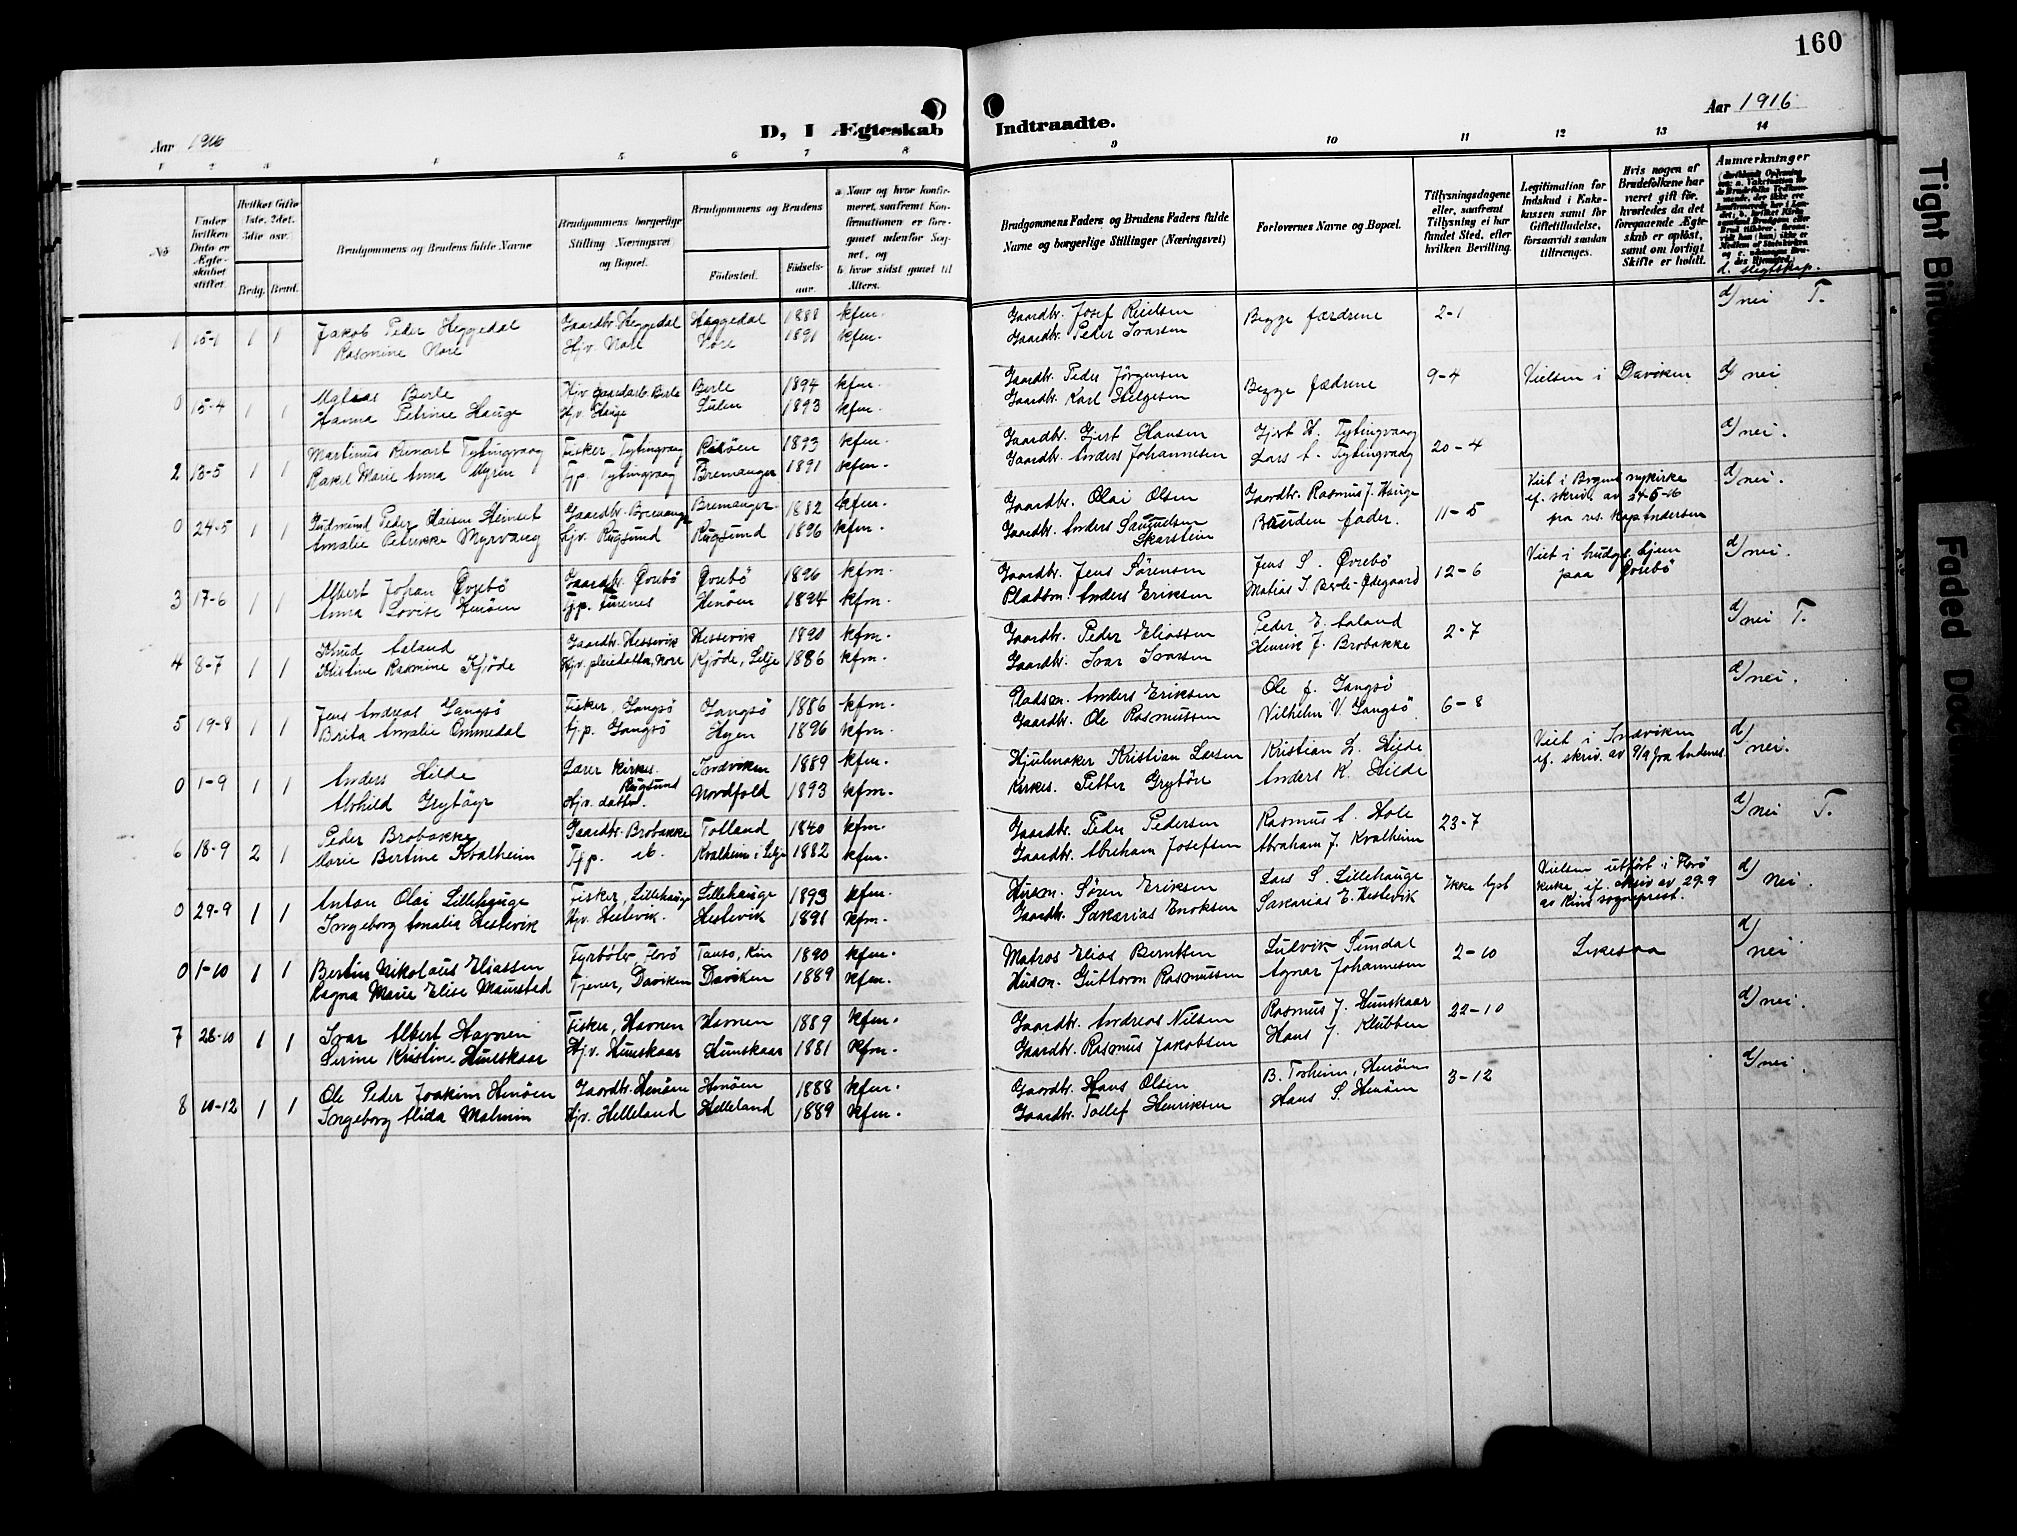 160
Aar 1916
D, I Ægteskab Indtraadte.
Aar 1916
No
Under hvilken Dato er Ægteskabet stiftet.
Hvilket Gifte 1ste, 2det, 3die osv.
Brdg. Brud.
Brudgommens og Brudens fulde Navne
Brudgommens borgerlige Stilling (Næringsvei) og Bopæl.
Brudgommens og Brudens
Fødested.
Fødselsaar.
a. Naar og hvor konfirmeret, saafremt Konfirmationen er foregaaet udenfor Sognet, og
b. hvor sidst gaaet til Alters.
Brudgommens Faders og Brudens Faders fulde Navne og borgerlige Stillinger (Næringsvei)
Forlovernes Navne og Bopæl.
Tillysningsdagene eller, saafremt Tillysning ei har fundet Sted, efter hvilken Bevilling.
Legitimation for Indskud i Enkekassen samt for Giftetilladelse, forsaavidt saadan tiltrænges.
Hvis nogen af Brudefolkene har været gift før, hvorledes da det foregaaende Ægteskab er opløst, samt om lovligt Skifte er holdt.
Anmærkninger
d. slegtskap.
1 15-1 1 1 Jakob Peder Heggedal Gaardbr. Heggedal Heggedal 1888 kfm. Gaardbr. Josef Begge fædrene 2-1 d/ nei T.
Rasmine Nore Hjv. Nore Nore 1891 kfm. Gaardbr. Peder Ivarsen
0 15-4 1 1 Berle Hjv. gaardarb. Berle Berle 1894 kfm. Gaardbr. Peder Jørgensen Begge fædrene 9-4 Vielsen i Daviken d/ nei
Hanna Petrine Hauge Hjv. Hauge 1893 kfm. Gaardbr. Karl
2 13-5 1 1 Martinus Tytingvaag Fisker, Tytingvaag 1893 kfm. Gaardbr. Gjert Hansen Gjert H. Tytingvaag 20-4 d/ nei.
Rakel Marie Anna Myren Tjp. Tytingvaag Bremanger 1891 kfm. Gaardbr. Anders Johannesen Lars Tytingvaag
0 24-5 1 1 Gudmund Peder Gaardbr. Bremanger Bremanger 1882 kfm. Gaardbr. Olai Olsen Gaardbr. Rasmus J. Hauge 11-5 Viet i nykirke ef. skriv. av 24-5-16 fra res. kap. Andersen d/ nei.
Amalie Petrikke Myrvang Hjv. Rugsund Rugsund 1896 kfm. Gaardbr. Anders Samuelsen Skarstein Bruden fader.
3 17-6 1 1 Albert Johan Øvrebö Gaardbr. Øvrebö Øvrebö 1896 kfm. Gaardbr. Jens Sørensen Jens S. Øvrebö 12-6 Viet i hjem paa Øvrebö d/ nei.
Anna Lovise Henöen Tjp. Henöen 1894 kfm. Pladsm. Anders Eriksen Matias J. Berle-Ødegaard
4 8-7 1 1 Knud Aaland Gaardbr. Hessevik Hessevik 1890 kfm. Gaardbr. Peder Eliassen Peder E. Aaland 2-7 d/ nei T.
Kristine Rasmine Kjöde Hjv. pleiedatter, Nore Kjöde, Selje 1886 kfm. Gaardbr. Ivar Ivarsen Henrik J. Brobakke
5 19-8 1 1 Jens Andreas Gangsö Fisker, Gangsö Gangsö 1886 kfm. Pladsm. Anders Eriksen Ole J. Gangsö 6-8 d/ nei.
Brita Amalie Ommedal tj.p. Gangsö Hyen 1896 kfm. Gaardbr. Ole Rasmussen Vilhelm V. Gangsö
0 1-9 1 1 Anders Hilde Lærer kirkes. Rugsund Indviken 1889 kfm. Hjulmaker Kristian Larsen Kristian L. Hilde Viet i Indviken ef. skriv. av 9/9 fra d/ nei.
Grytöyr Hjv. datter. Nordfold 1893 kfm. Kirkes. Petter Grytöyr Anders K. Hilde
6 18-9 2 1 Peder Brobakke Gaardbr. Brobakke Tolland 1840 kfm. Gaardbr. Peder Pedersen Rasmus A. Hole 23-7 d/ nei T.
Marie Bertine Kvalheim Tjp. ib. Kvalheim i Selje 1882 kfm. Gaardbr. Abraham Josefsen Abraham J. Kvalheim
0 29-9 1 1 Anton Olai Lillehauge Fisker, Lillehauge Lillehauge 1893 kfm. Husm. Søren Eriksen Lars S. Lillehauge Ikke lyst Vielsen utført i Florö kirke ef. skriv av 29-9 av Kins sogneprest. d/ nei.
Ingeborg Amalia Hestevik Hjv. Hestevik. Hestevik 1891 kfm. Gaardbr. Sakarias Enoksen Sakarias E. Hestevik
0 1-10 1 1 Bertin Nikolaus Eliassen Fyrböter, Florö Tansö, Kin 1890 kfm. Matros Elias Berntsen Sindal 2-10 Likesaa d/ nei
Ragna Marie Elise Maurstad Tjener, Daviken Daviken 1889 kfm. Husm. Guttorm Rasmussen Agnar Johannesen
7 28-10 1 1 Ivar Albert Havnen Fisker, Havnen Havnen 1889 kfm. Gaardbr. Andreas Nilsen Rasmus J. Hunskaar 22-10 d/ nei.
Serine Kristine Hunskaar Hjv. Hunskaar Hunskaar 1881 kfm. Gaardbr. Rasmus Jakobsen Hans J. Klubben
8 10-12 1 1 Ole Peder Joakim Henöen Gaardbr. Henöen Henöen 1888 kfm. Gaardbr. Hans Olsen B. Torheim, Henöen 3-12 d/ nei.
Ingeborg Alida Malmin Hjv. Helleland Helleland 1889 kfm. Gaardbr. Tollef Henriksen Hans S. Henöen
Tight Bind
Faded Doc